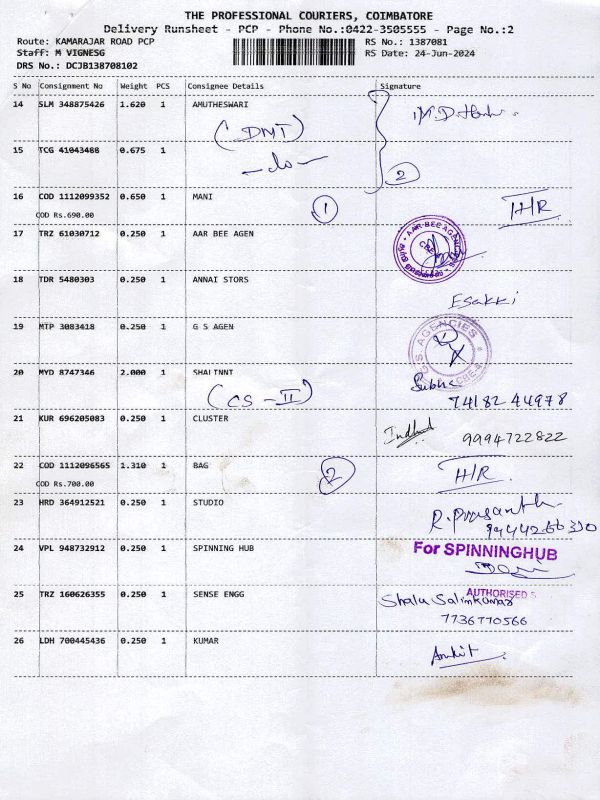 THE PROFESSIONAL COURIERS, COIMBATORE
Delivery Runsheet - PCP - Phone No.:0422-3505555 - Page No.:2
Route: KAMARAJAR ROAD PCP RS No.: 1387081
Staff: M VIGNESG RS Date: 24-Jun-2024
DRS No.: DCJB138708102
S No Consignment No Weight PCS Consignee Details Signature
14 SLM 348875426 1.620 1 AMUTHESWARI
(DMT)
15 TCG 41043488 0.675 1 -do-
2
16 COD 1112099352 0.650 1 MANI 1 H/R
COD Rs.690.00
17 TRZ 61030712 0.250 1 AAR BEE AGEN
AAR BEE AGENCIES
18 TDR 5480303 0.250 1 ANNAI STORS
Esakki
19 MTP 3083418 0.250 1 G S AGEN
G.S. AGENCIES CBE-4
20 MYD 8747346 2.000 1 SHALTNNT Subha
(CS-II) 74182 44978
21 KUR 696205083 0.250 1 CLUSTER
9994722822
22 COD 1112096565 1.310 1 BAG 2 H/R
COD Rs.700.00
23 HRD 364912521 0.250 1 STUDIO R. Prasanth
9944266330
24 VPL 948732912 0.250 1 SPINNING HUB For SPINNINGHUB
AUTHORISED S
25 TRZ 160626355 0.250 1 SENSE ENGG Shalu Salimkumar
7736770566
26 LDH 700445436 0.250 1 KUMAR Ankit